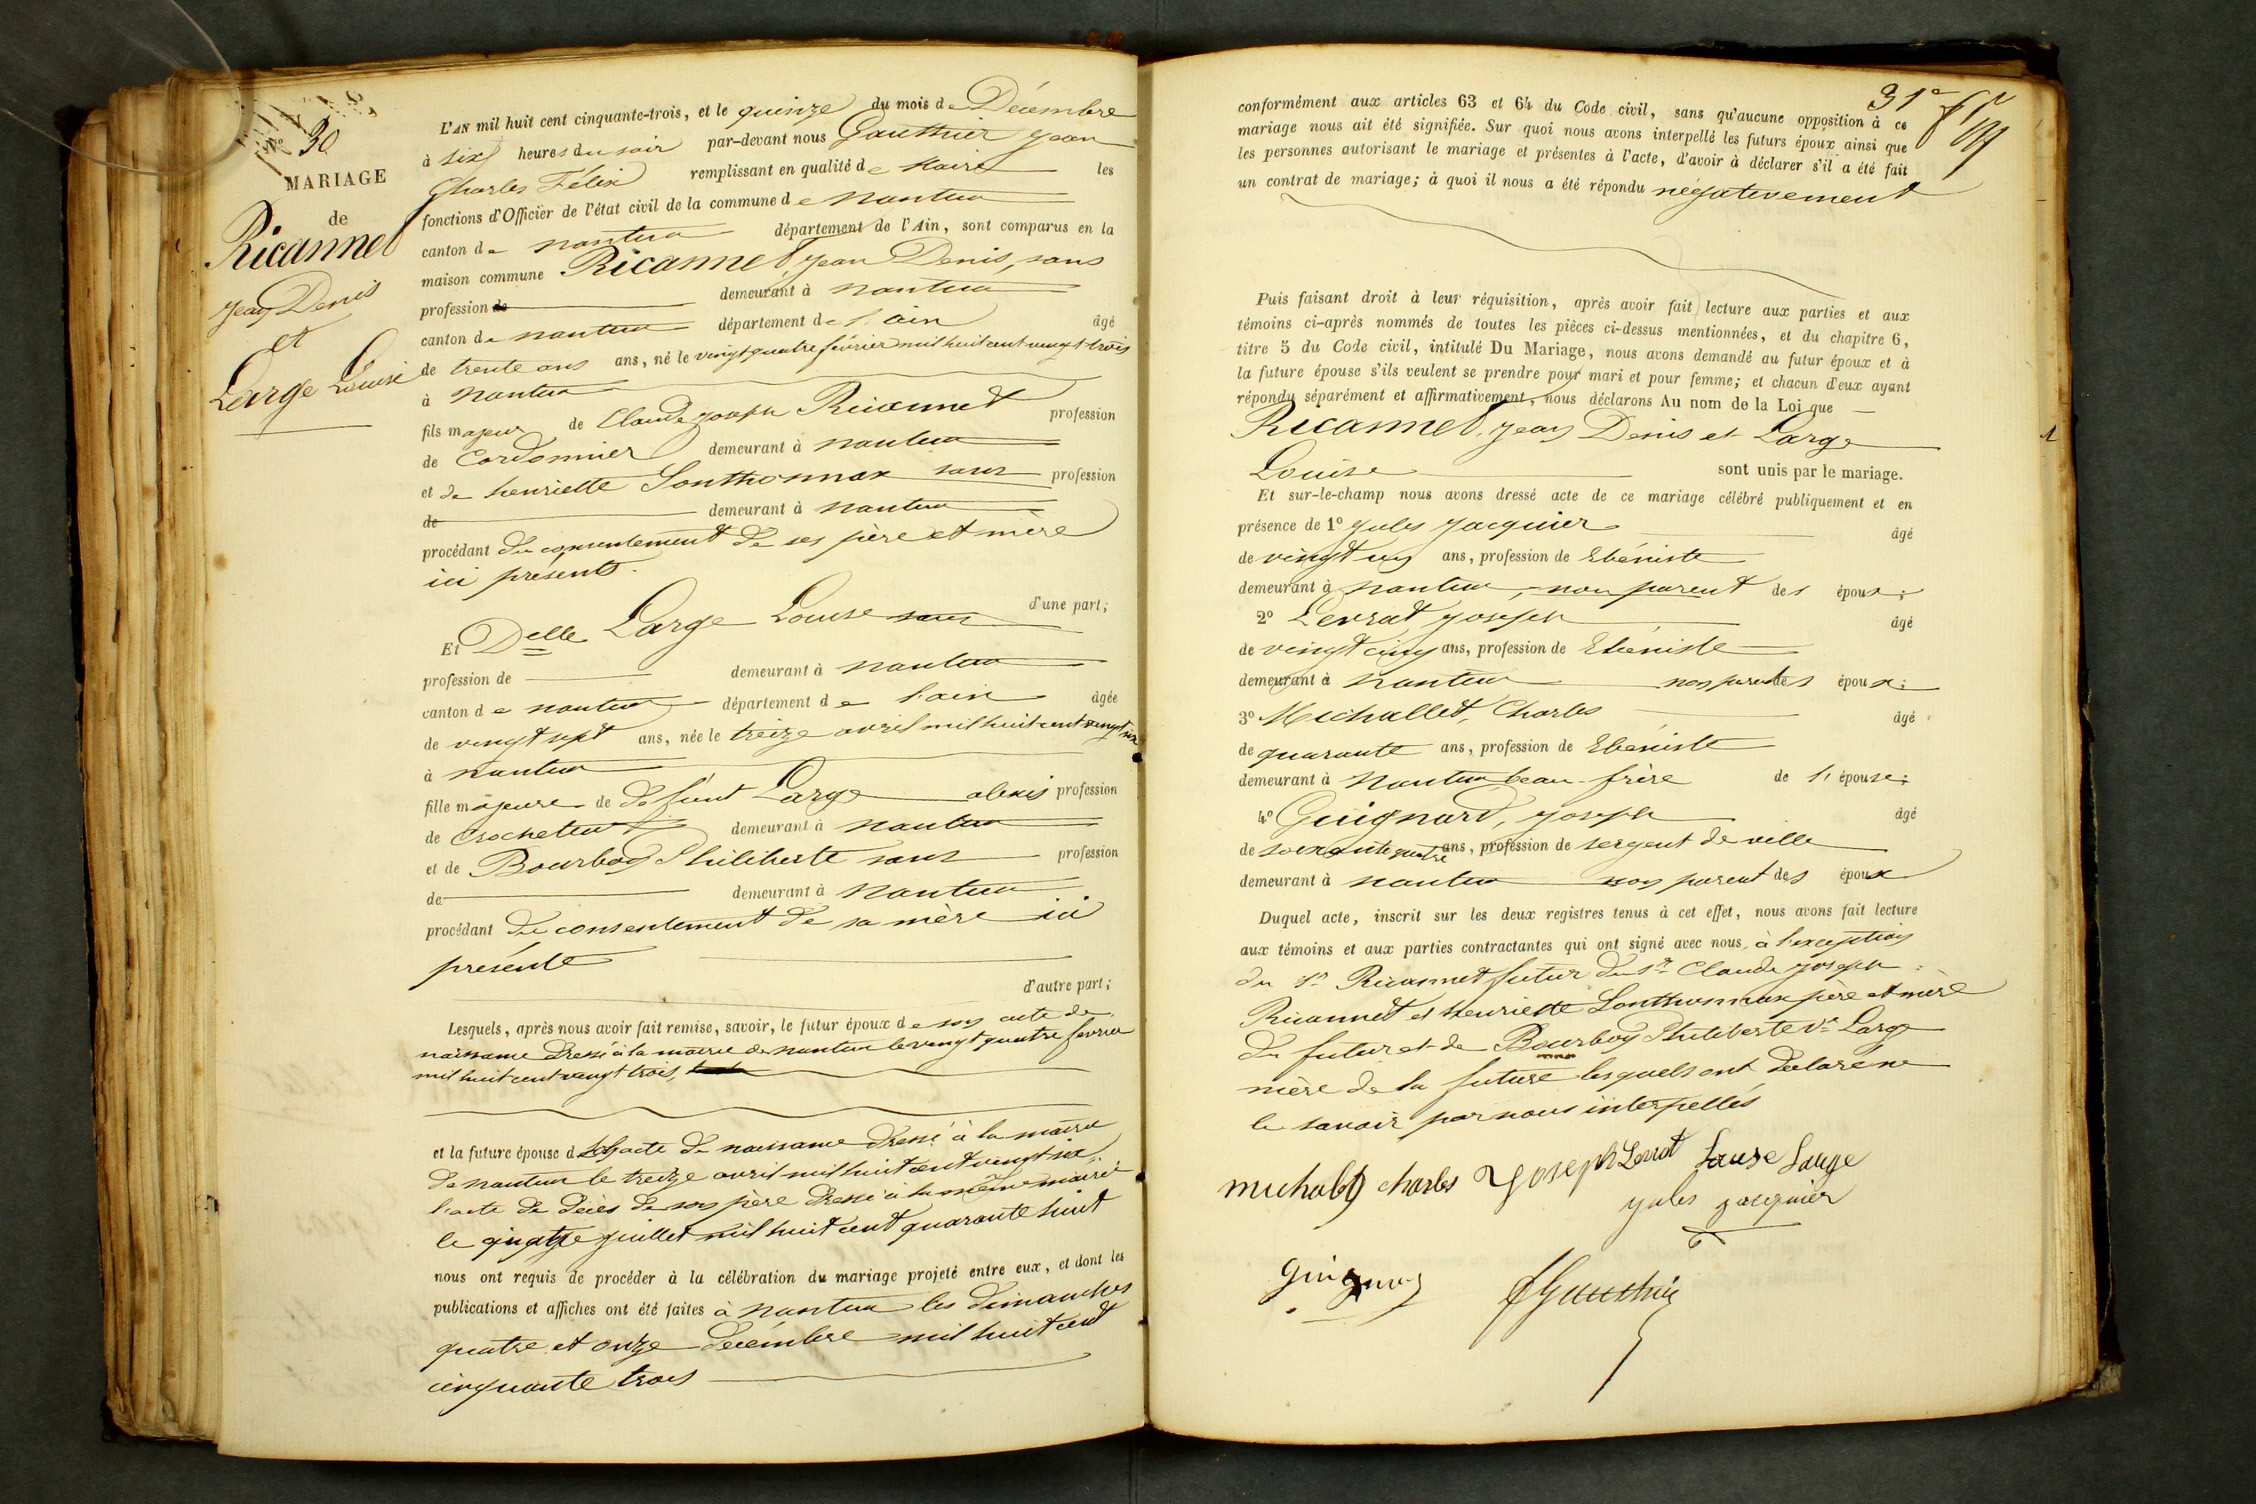 N° 30
MARIAGE
de
Ricannet
Jean Denis
et
Large Louise
L'AN mil huit cent cinquante-trois, et le quinze du mois de Décembre
à six heures du soir par-devant nous Gauthier Jean
Charles Félix remplissant en qualité de Maire les
fonctions d'Officier de l'état civil de la commune de Nantua
canton de nantua département de l'Ain, sont comparus en la
maison commune Ricannet, Jean Denis, sans
profession de demeurant à nantua
canton de nantua département de l'ain âgé
de trente ans ans, né le vingt quatre février mil huit cent vingt-trois
à nantua
fils majeur de Claude Joseph Ricannet profession
de Cordonnier demeurant à nantua
et de henriette Sonthonnax sans profession
de demeurant à nantua
procédant du consentement de ses père et mère
ici présents.
d'une part;
Et Delle Large Louise sans
profession de demeurant à nantua
canton de nantua département de l'ain âgée
de vingt sept ans, née le treize avril mil huit cent vingt six
à nantua
fille majeure de défunt Large alexis profession
de Crocheteur demeurant à nantua
et de Bourbon Philiberte sans profession
de demeurant à nantua
procédant du consentement de sa mère ici
présente
d'autre part;
Lesquels, après nous avoir fait remise, savoir, le futur époux de son acte de
naissance dressé à la mairie de nantua le vingt quatre fevrier
mil huit cent vingt trois,
et la future épouse de son acte de naissance dressé à la mairie
de nantua le treize avril mil huit cent vingt six,
l'acte de décès de son père dressé à la même mairie
le quatre juillet mil huit cent quarante huit
nous ont requis de procéder à la célébration du mariage projeté entre eux, et dont les
publications et affiches ont été faites à nantua les dimanches
quatre et onze decémbre mil huit cent
cinquante trois
31e
conformément aux articles 63 et 64 du Code civil, sans qu'aucune opposition à ce
mariage nous ait été signifiée. Sur quoi nous avons interpellé les futurs époux ainsi que
les personnes autorisant le mariage et présentes à l'acte, d'avoir à déclarer s'il a été fait
un contrat de mariage; à quoi il nous a été répondu négativement
Puis faisant droit à leur réquisition, après avoir fait lecture aux parties et aux
témoins ci-après nommés de toutes les pièces ci-dessus mentionnées, et du chapitre 6,
titre 5 du Code civil, intitulé Du Mariage, nous avons demandé au futur époux et à
la future épouse s'ils veulent se prendre pour mari et pour femme; et chacun d'eux ayant
répondu séparément et affirmativement, nous déclarons Au nom de la Loi que
Ricannet, Jean Denis et Large
Louise sont unis par le mariage.
Et sur-le-champ nous avons dressé acte de ce mariage célébré publiquement et en
présence de 1° Jules Jacquier âgé
de vingt un ans, profession de Ebéniste
demeurant à nantua, non parent des époux;
2° Levrat Joseph âgé
de vingt cinq ans, profession de Ebéniste
demeurant à nantua non parent des époux;
3° Michallet, Charles âgé
de quarante ans, profession de Ebéniste
demeurant à Nantua beau-frère de l'épouse;
4° Guignard, Joseph âgé
de soixante quatre ans, profession de sergent de ville
demeurant à nantua non parent des époux
Duquel acte, inscrit sur les deux registres tenus à cet effet, nous avons fait lecture
aux témoins et aux parties contractantes qui ont signé avec nous, à l'exception
du sr Ricannet futur du sr Claude Joseph
Ricannet et henriette Sonthonnax père et mère
du futur et de Bourbon Philiberte ve Large
mère de la future lesquels ont declaré ne
le savoir par nous interpellés
michalet charles Joseph Levrat Louise Large
jules jacquier
Gauthier